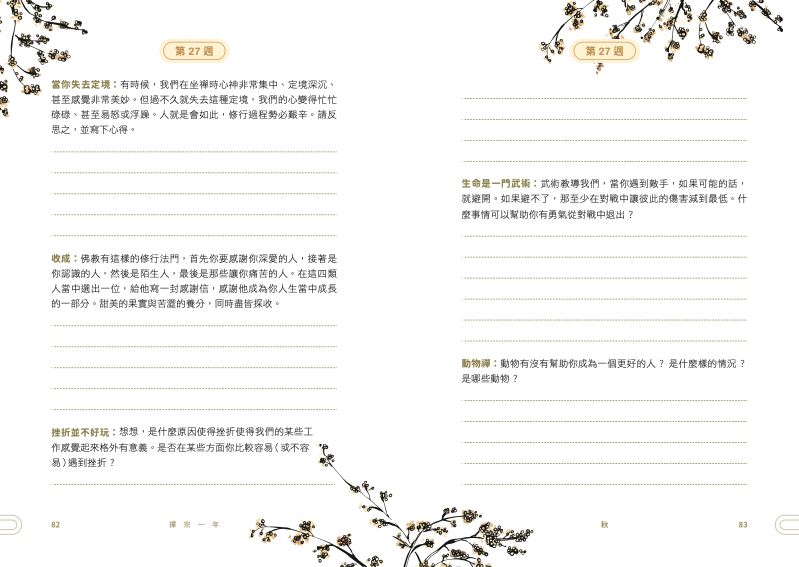 第 27 週
當你失去定境：有時候，我們在坐禪時心神非常集中、定境深沉、
甚至感覺非常美妙。但過不久就失去這種定境，我們的心變得忙忙
碌碌、甚至易怒或浮躁。人就是會如此，修行過程勢必艱辛。請反
思之，並寫下心得。
收成：佛教有這樣的修行法門，首先你要感謝你深愛的人，接著是
你認識的人，然後是陌生人，最後是那些讓你痛苦的人。在這四類
人當中選出一位，給他寫一封感謝信，感謝他成為你人生當中成長
的一部分。甜美的果實與苦澀的養分，同時盡皆採收。
挫折並不好玩：想想，是什麼原因使得挫折使得我們的某些工
作感覺起來格外有意義。是否在某些方面你比較容易（或不容
易）遇到挫折？
82
禪宗一年
第 27 週
生命是一門武術：武術教導我們，當你遇到敵手，如果可能的話，
就避開。如果避不了，那至少在對戰中讓彼此的傷害減到最低。什
麼事情可以幫助你有勇氣從對戰中退出？
動物禪：動物有沒有幫助你成為一個更好的人？ 是什麼樣的情況？
是哪些動物？
秋
83